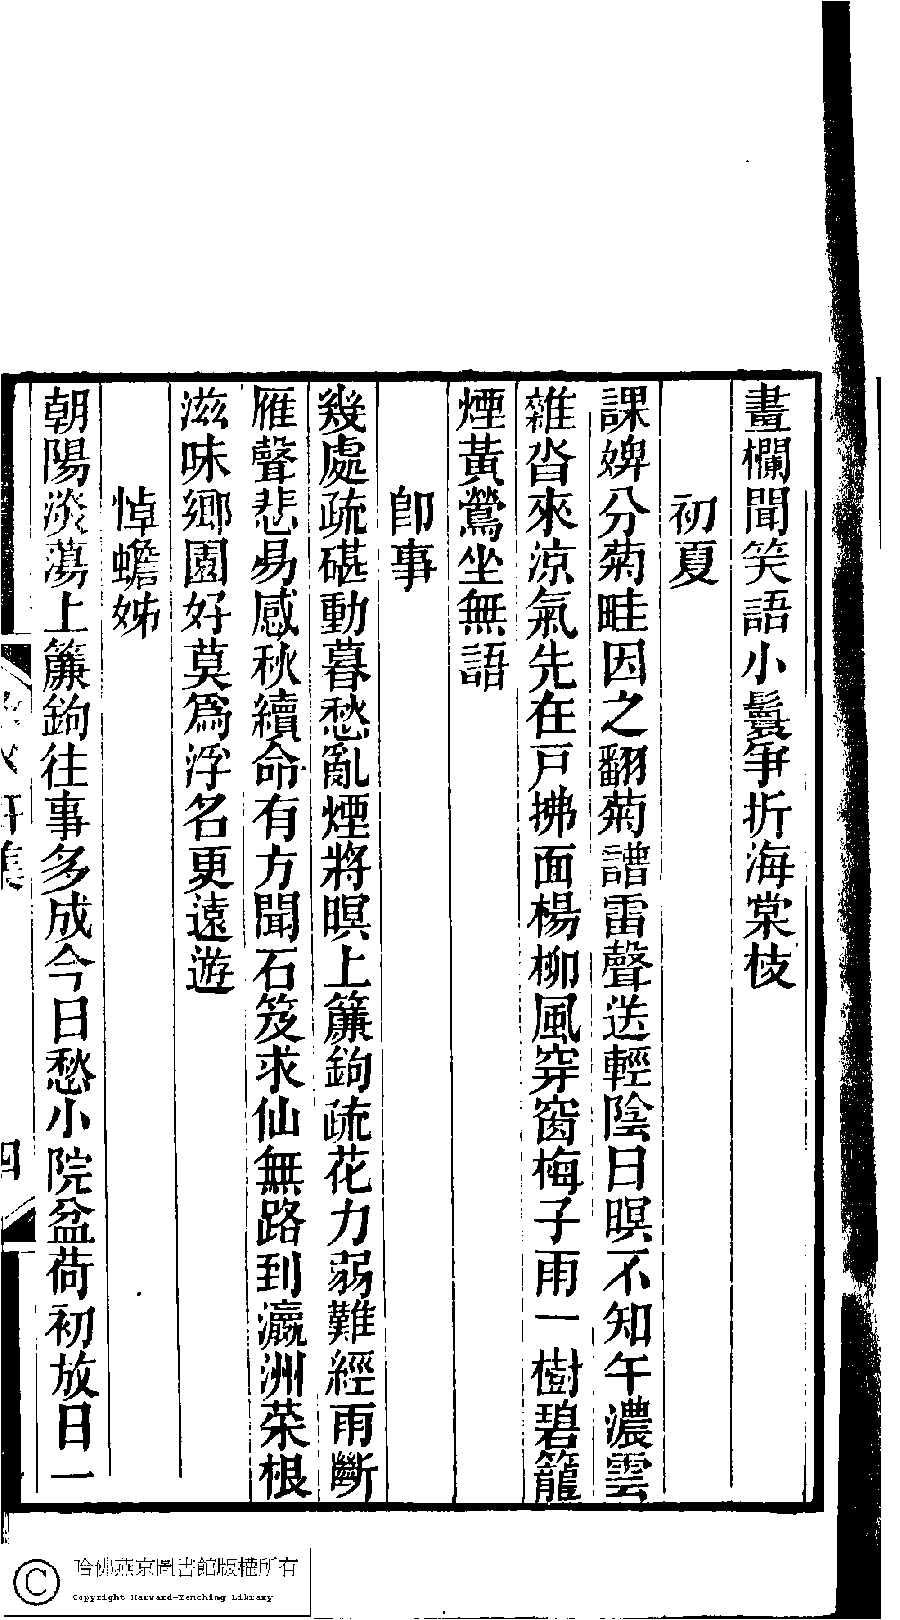 畫欄聞笑語小鬟爭折海棠枝
初夏
課婢分菊畦因之翻菊譜雷聲送輕陰日暝不知午濃雲
雜沓來涼氣先在戸拂面楊柳風穿窗梅子雨一樹碧籠
煙黃鶯坐無語
卽事
幾處疏碪動暮愁亂煙將暝上簾鉤疏花力弱難經雨斷
雁聲悲易感秋續命有方聞石笈求仙無路到瀛洲菜根
滋味鄉園好莫爲浮名更遠遊
悼蟾姊
朝陽淡蕩上簾鉤往事多成今日愁小院盆荷初放日一
集
四
哈佛燕京圖書館版權所有
Copyright Harvard-Yenching Library